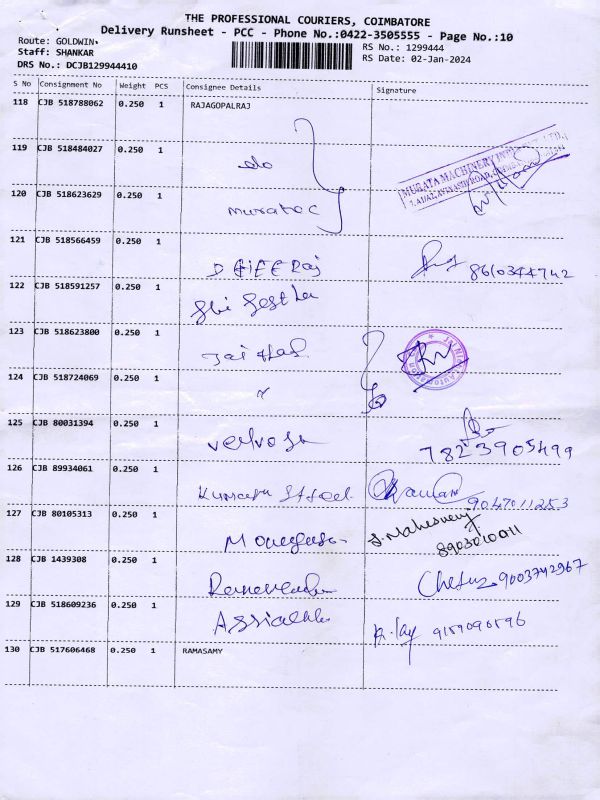 THE PROFESSIONAL COURIERS, COIMBATORE
Delivery Runsheet - PCC - Phone No.:0422-3505555 - Page No.:10
Route: GOLDWIN
Staff: SHANKAR
DRS No.: DCJB129944410
RS No.: 1299444
RS Date: 02-Jan-2024
S No Consignment No Weight PCS Consignee Details Signature
118 CJB 518788062 0.250 1 RAJAGOPALRAJ
119 CJB 518484027 0.250 1 do
MURATA MACHINERY
120 CJB 518623629 0.250 1 muratec
121 CJB 518566459 0.250 1 8610344742
122 CJB 518591257 0.250 1
123 CJB 518623800 0.250 1 Jai
124 CJB 518724069 0.250 1 "
125 CJB 80031394 0.250 1 7823905499
126 CJB 89934061 0.250 1 Kumaran Steel 9047011253
127 CJB 80105313 0.250 1 8903010011
128 CJB 1439308 0.250 1 9003742967
129 CJB 518609236 0.250 1 9159090596
130 CJB 517606468 0.250 1 RAMASAMY